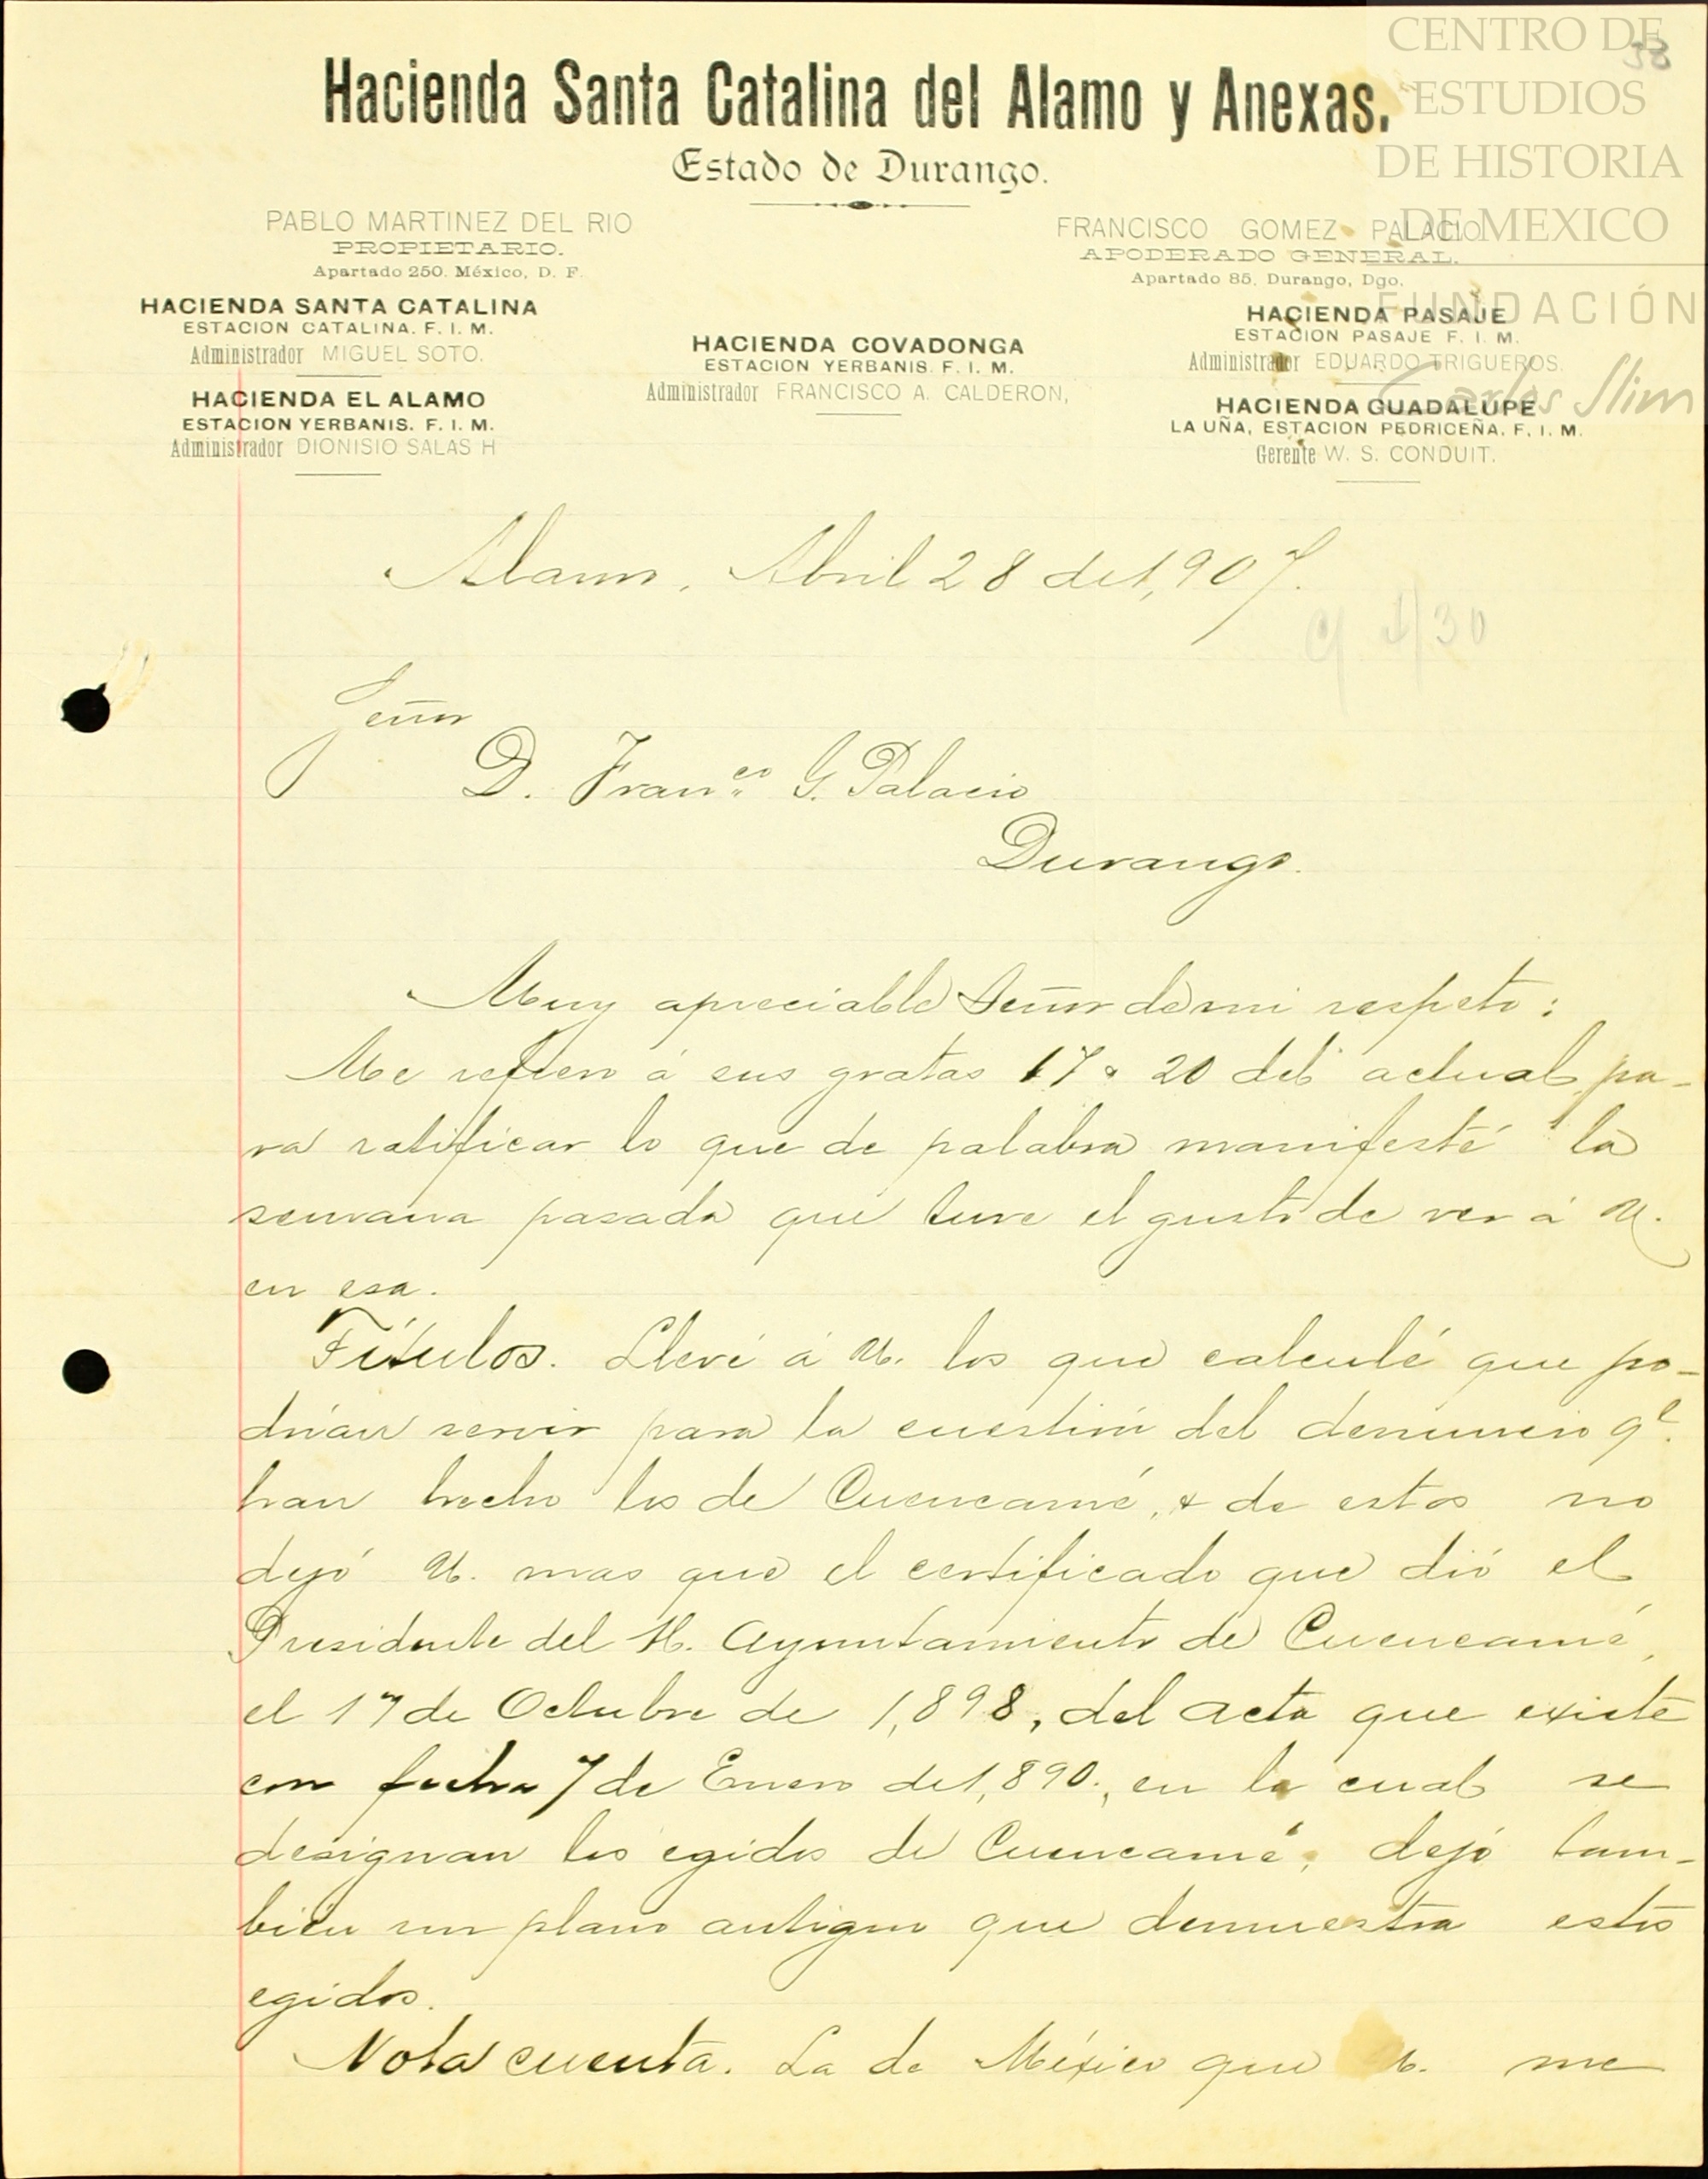 CENTRO DE
ESTUDIOS
DE HISTORIA
DE MEXICO
FUNDACIÓN
Carlos Slim
38
Hacienda Santa Catalina del Alamo y Anexas.
Estado de Durango.
PABLO MARTINEZ DEL RIO
PROPIETARIO.
Apartado 250. México, D. F.
FRANCISCO GOMEZ PALACIO
APODERADO GENERAL.
Apartado 85, Durango, Dgo.
HACIENDA SANTA CATALINA
ESTACION CATALINA. F. I. M.
Administrador MIGUEL SOTO.
HACIENDA EL ALAMO
ESTACION YERBANIS. F. I. M.
Administrador DIONISIO SALAS H
HACIENDA COVADONGA
ESTACION YERBANIS. F. I. M.
Administrador FRANCISCO A. CALDERON,
HACIENDA PASAJE
ESTACION PASAJE F. I. M.
Administrador EDUARDO TRIGUEROS.
HACIENDA GUADALUPE
LA UÑA, ESTACION PEDRICEÑA, F. I. M.
Gerente W. S. CONDUIT.
Alamo, Abril 28 de 1,907.
Señor
D. Franco G. Palacio
Durango.
Muy apreciable Señor de mi respeto:
Me refiero á sus gratas 17 & 20 del actual pa-
ra ratificar lo que de palabra manifesté la
semana pasada que tuve el gusto de ver á U.
en esa.
Títulos. Llevé á U. los que calculé que po-
drían servir para la cuestión del denuncio qe.
han hecho los de Cuencamé, & de estos no
dejó U. mas que el certificado que dió el
Presidente del H. Ayuntamiento de Cuencamé,
el 17 de Octubre de 1,898, del acta que existe
con fecha 7 de Enero de 1,890., en la cual se
designan los egidos de Cuencamé; dejó tam-
bién un plano antiguo que demuestra estos
egidos.
Nota cuenta. La de México que U. me